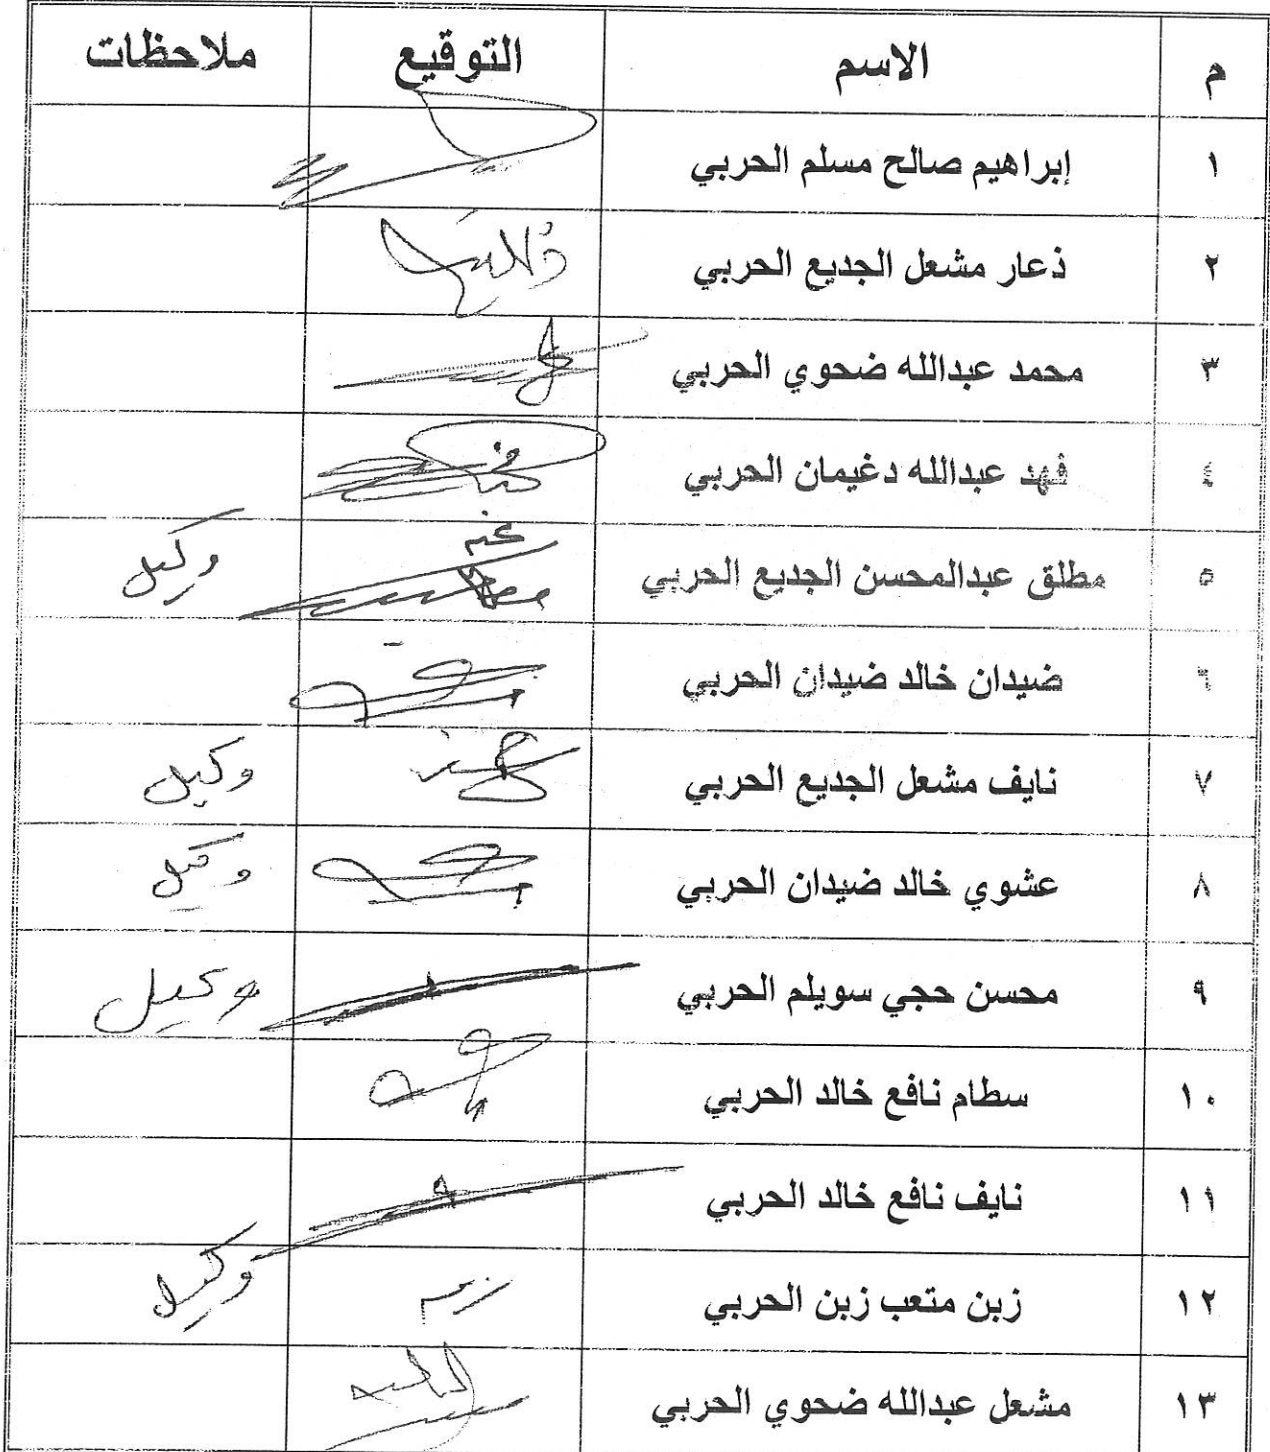 م الاسم التوقيع ملاحظات
١ إبراهيم صالح مسلم الحربي
٢ ذعار مشعل الجديع الحربي
٣ محمد عبدالله ضحوي الحربي
٤ فهد عبدالله دغيمان الحربي
٥ مطلق عبدالمحسن الجديع الحربي عنه وكيل
٦ ضيدان خالد ضيدان الحربي
٧ نايف مشعل الجديع الحربي وكيل
٨ عشوي خالد ضيدان الحربي وكيل
٩ محسن حجي سويلم الحربي وكيل
١٠ سطام نافع خالد الحربي
١١ نايف نافع خالد الحربي
١٢ زبن متعب زبن الحربي وكيل
١٣ مشعل عبدالله ضحوي الحربي